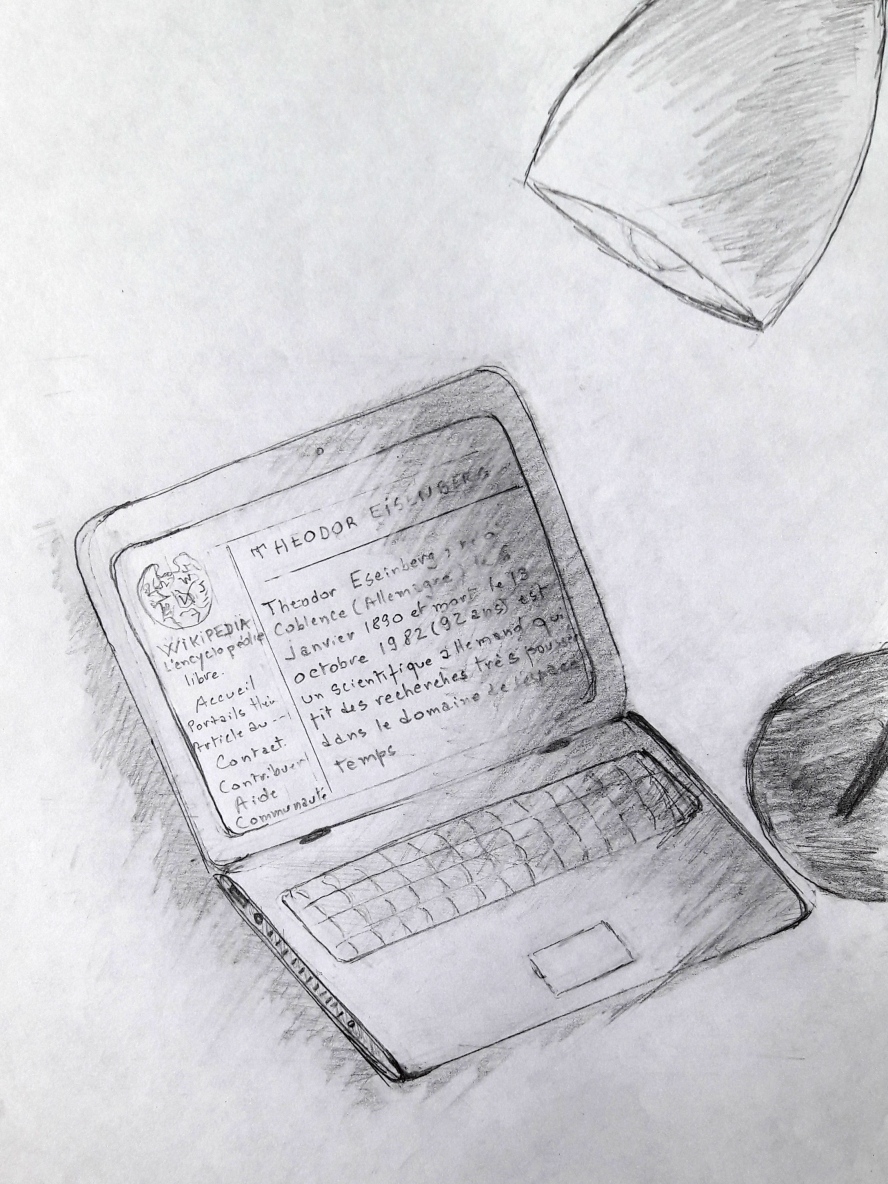 THEODOR EISENBERG
WIKIPEDIA
L'encyclopédie
libre.
Accueil
Portails
Article au ---
Contact.
Contribuer
Aide
Communauté
Theodor Eseinberg, né à
Coblence (Allemagne) le
janvier 1890 et mort le 18
octobre 1982 (92 ans) est
un scientifique allemand qui
fit des recherches très
dans le domaine de l'espace
temps